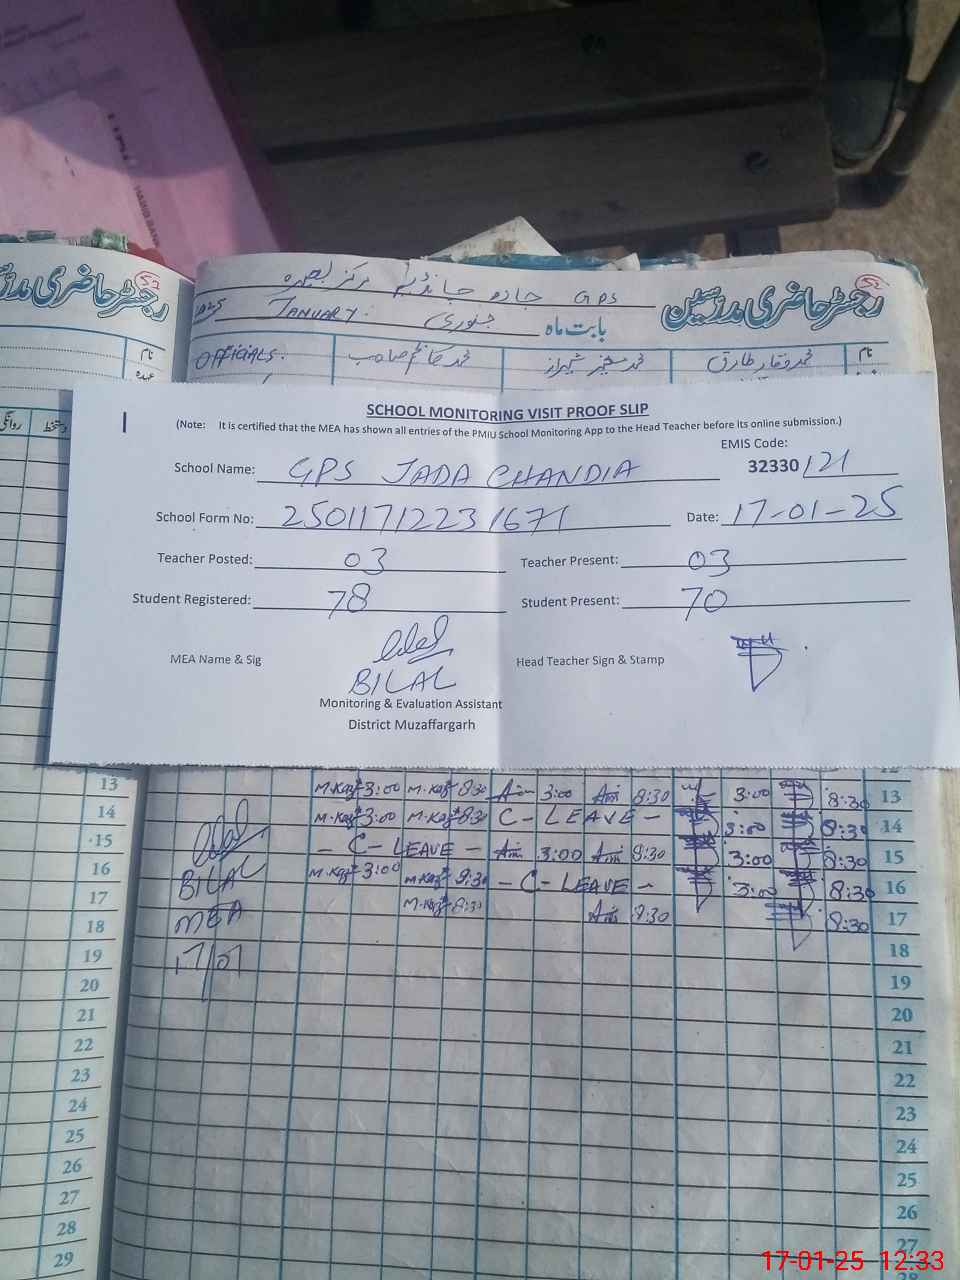 رجسٹر حاضری مدرسین
52
GPS جاده چانڈیہ مرکز بصیرہ
52
رجسٹر حاضری مدرسین
بابت ماہ جنوری JANUARY: 2025
نام
محمد وقار طارق
محمد کاظم صاحب
OFFICIALS:
نام
عہدہ
دستخط
روانگی
SCHOOL MONITORING VISIT PROOF SLIP
(Note: It is certified that the MEA has shown all entries of the PMIU School Monitoring App to the Head Teacher before its online submission.)
EMIS Code:
School Name: GPS JADA CHANDIA 32330/121
School Form No: 25011712231671 Date: 17-01-25
Teacher Posted: 03 Teacher Present: 03
Student Registered: 78 Student Present: 70
MEA Name & Sig Bilal Head Teacher Sign & Stamp
BILAL
Monitoring & Evaluation Assistant
District Muzaffargarh
13 M.Kaz 3:00 M.Kaz 8:30 3:00 8:30 3:00 8:30 13
14 M.Kaz 3:00 M.Kaz 8:30 C-LEAVE- 3:00 8:30 14
15 -C-LEAVE- 3:00 8:30 3:00 8:30 15
16 M.Kaz 3:00 M.Kaz 8:30 -C-LEAVE- 3:00 8:30 16
17 M.Kaz 8:30 8:30 8:30 17
Bilal
BILAL
MEA
17/01
18 18
19 19
20 20
21 21
22 22
23 23
24 24
25 25
26 26
27 27
28
29
17-01-25 12:33